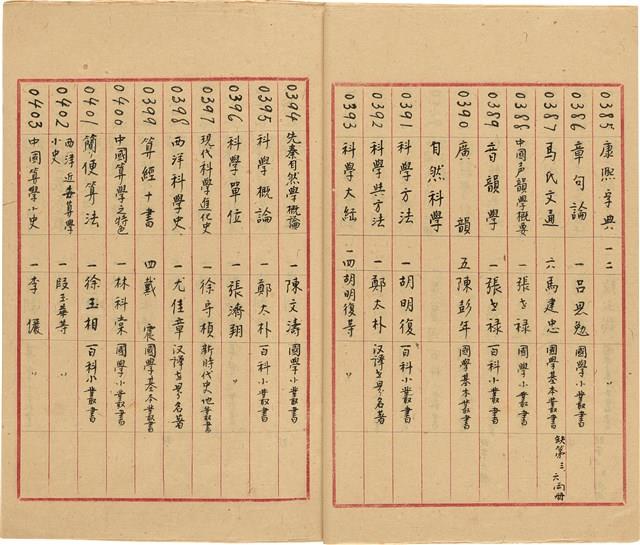 0385 康熙字典 一二
0386 章句論 一 呂思勉 國學小叢書
0387 馬氏文通 六 馬建忠 國學基本叢書 缺第三、六兩冊
0388 中國声韻學概要 一 張世祿 國學小叢書
0389 音韻學 一 張世祿 百科小叢書
0390 廣韻 五 陳彭年 國學基本叢書
自然科學
0391 科學方法 一 胡明復
0392 科學與方法 一 鄭太朴 汉譯世界名著
0393 科學大綱 一四 胡明復等 〃
0394 先秦自然學概論 一 陳文濤 國學小叢書
0395 科學概論 一 鄭太朴 百科小叢書
0396 科學單位 一 張濟翔 〃
0397 現代科學進化史 一 徐守楨 新時代史地叢書
0398 西洋科學史 一 尤佳章 汉譯世界名著
0399 算經十書 四 戴震 國學基本叢書
0400 中國算學之特色 一 林科棠 國學小叢書
0401 簡便算法 一 徐玉相 百科小叢書
0402 西洋近世算學小史 一 段玉華等 〃
0403 中國算學小史 一 李儼 〃